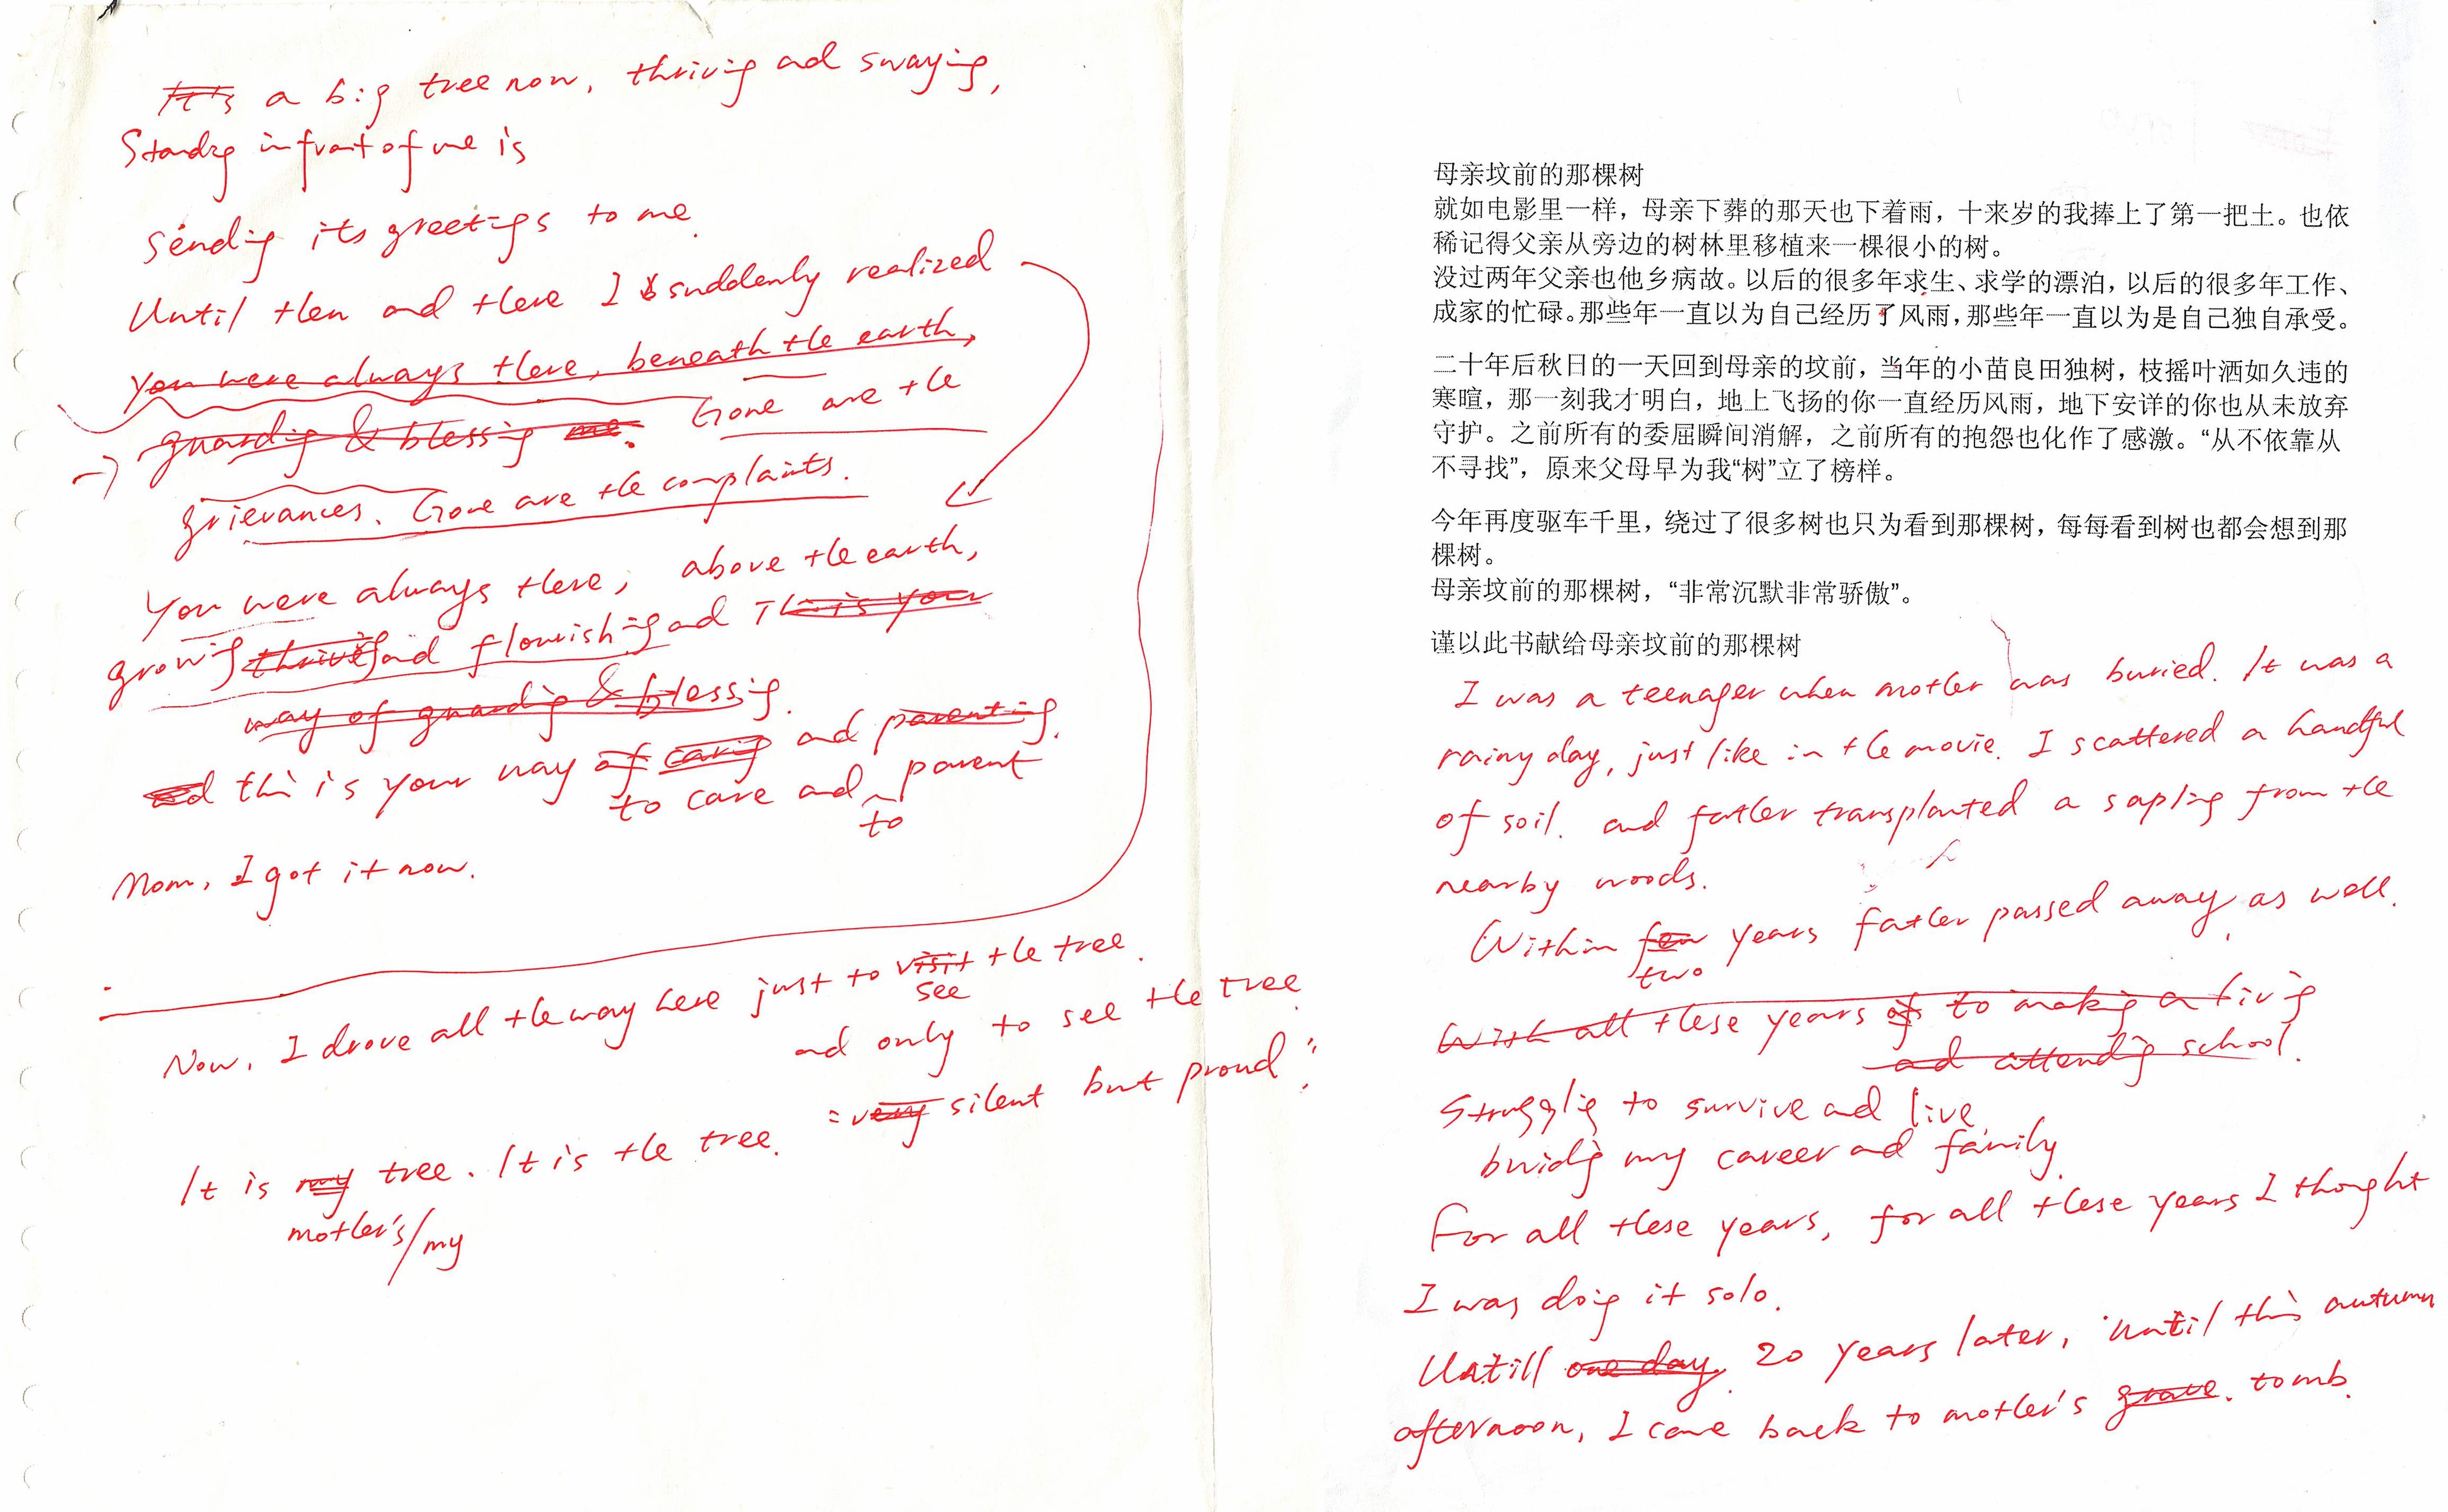 It's a big tree now, thriving and swaying,
Standing in front of me is
sending its greetings to me.
Until then and there I suddenly realized
you were always there, beneath the earth,
guarding & blessing me. Gone are the
grievances. Gone are the complaints.
You were always there, above the earth,
growing thriving and flourishing and This is your
way of guarding & blessing.
and this is your way of caring and parenting.
to care and to parent
Mom, I got it now.
Now, I drove all the way here just to visit the tree.
see
and only to see the tree
"very silent but proud"
It is my tree. It is the tree.
mother's/my
母亲坟前的那棵树
就如电影里一样，母亲下葬的那天也下着雨，十来岁的我捧上了第一把土。也依
稀记得父亲从旁边的树林里移植来一棵很小的树。
没过两年父亲也他乡病故。以后的很多年求生、求学的漂泊，以后的很多年工作、
成家的忙碌。那些年一直以为自己经历了风雨，那些年一直以为是自己独自承受。
二十年后秋日的一天回到母亲的坟前，当年的小苗良田独树，枝摇叶洒如久违的
寒暄，那一刻我才明白，地上飞扬的你一直经历风雨，地下安详的你也从未放弃
守护。之前所有的委屈瞬间消解，之前所有的抱怨也化作了感激。“从不依靠从
不寻找”，原来父母早为我“树”立了榜样。
今年再度驱车千里，绕过了很多树也只为看到那棵树，每每看到树也都会想到那
棵树。
母亲坟前的那棵树，“非常沉默非常骄傲”。
谨以此书献给母亲坟前的那棵树
I was a teenager when mother was buried. It was a
rainy day, just like in the movie. I scattered a handful
of soil. and father transplanted a sapling from the
nearby woods.
Within few years father passed away, as well.
two
With all these years of to making a living
and attending school.
Struggling to survive and live
buiding my career and family
For all these years, for all these years I thought
I was doing it solo.
Untill one day. 20 years later, until this autumn
afternoon, I came back to mother's grave. tomb.